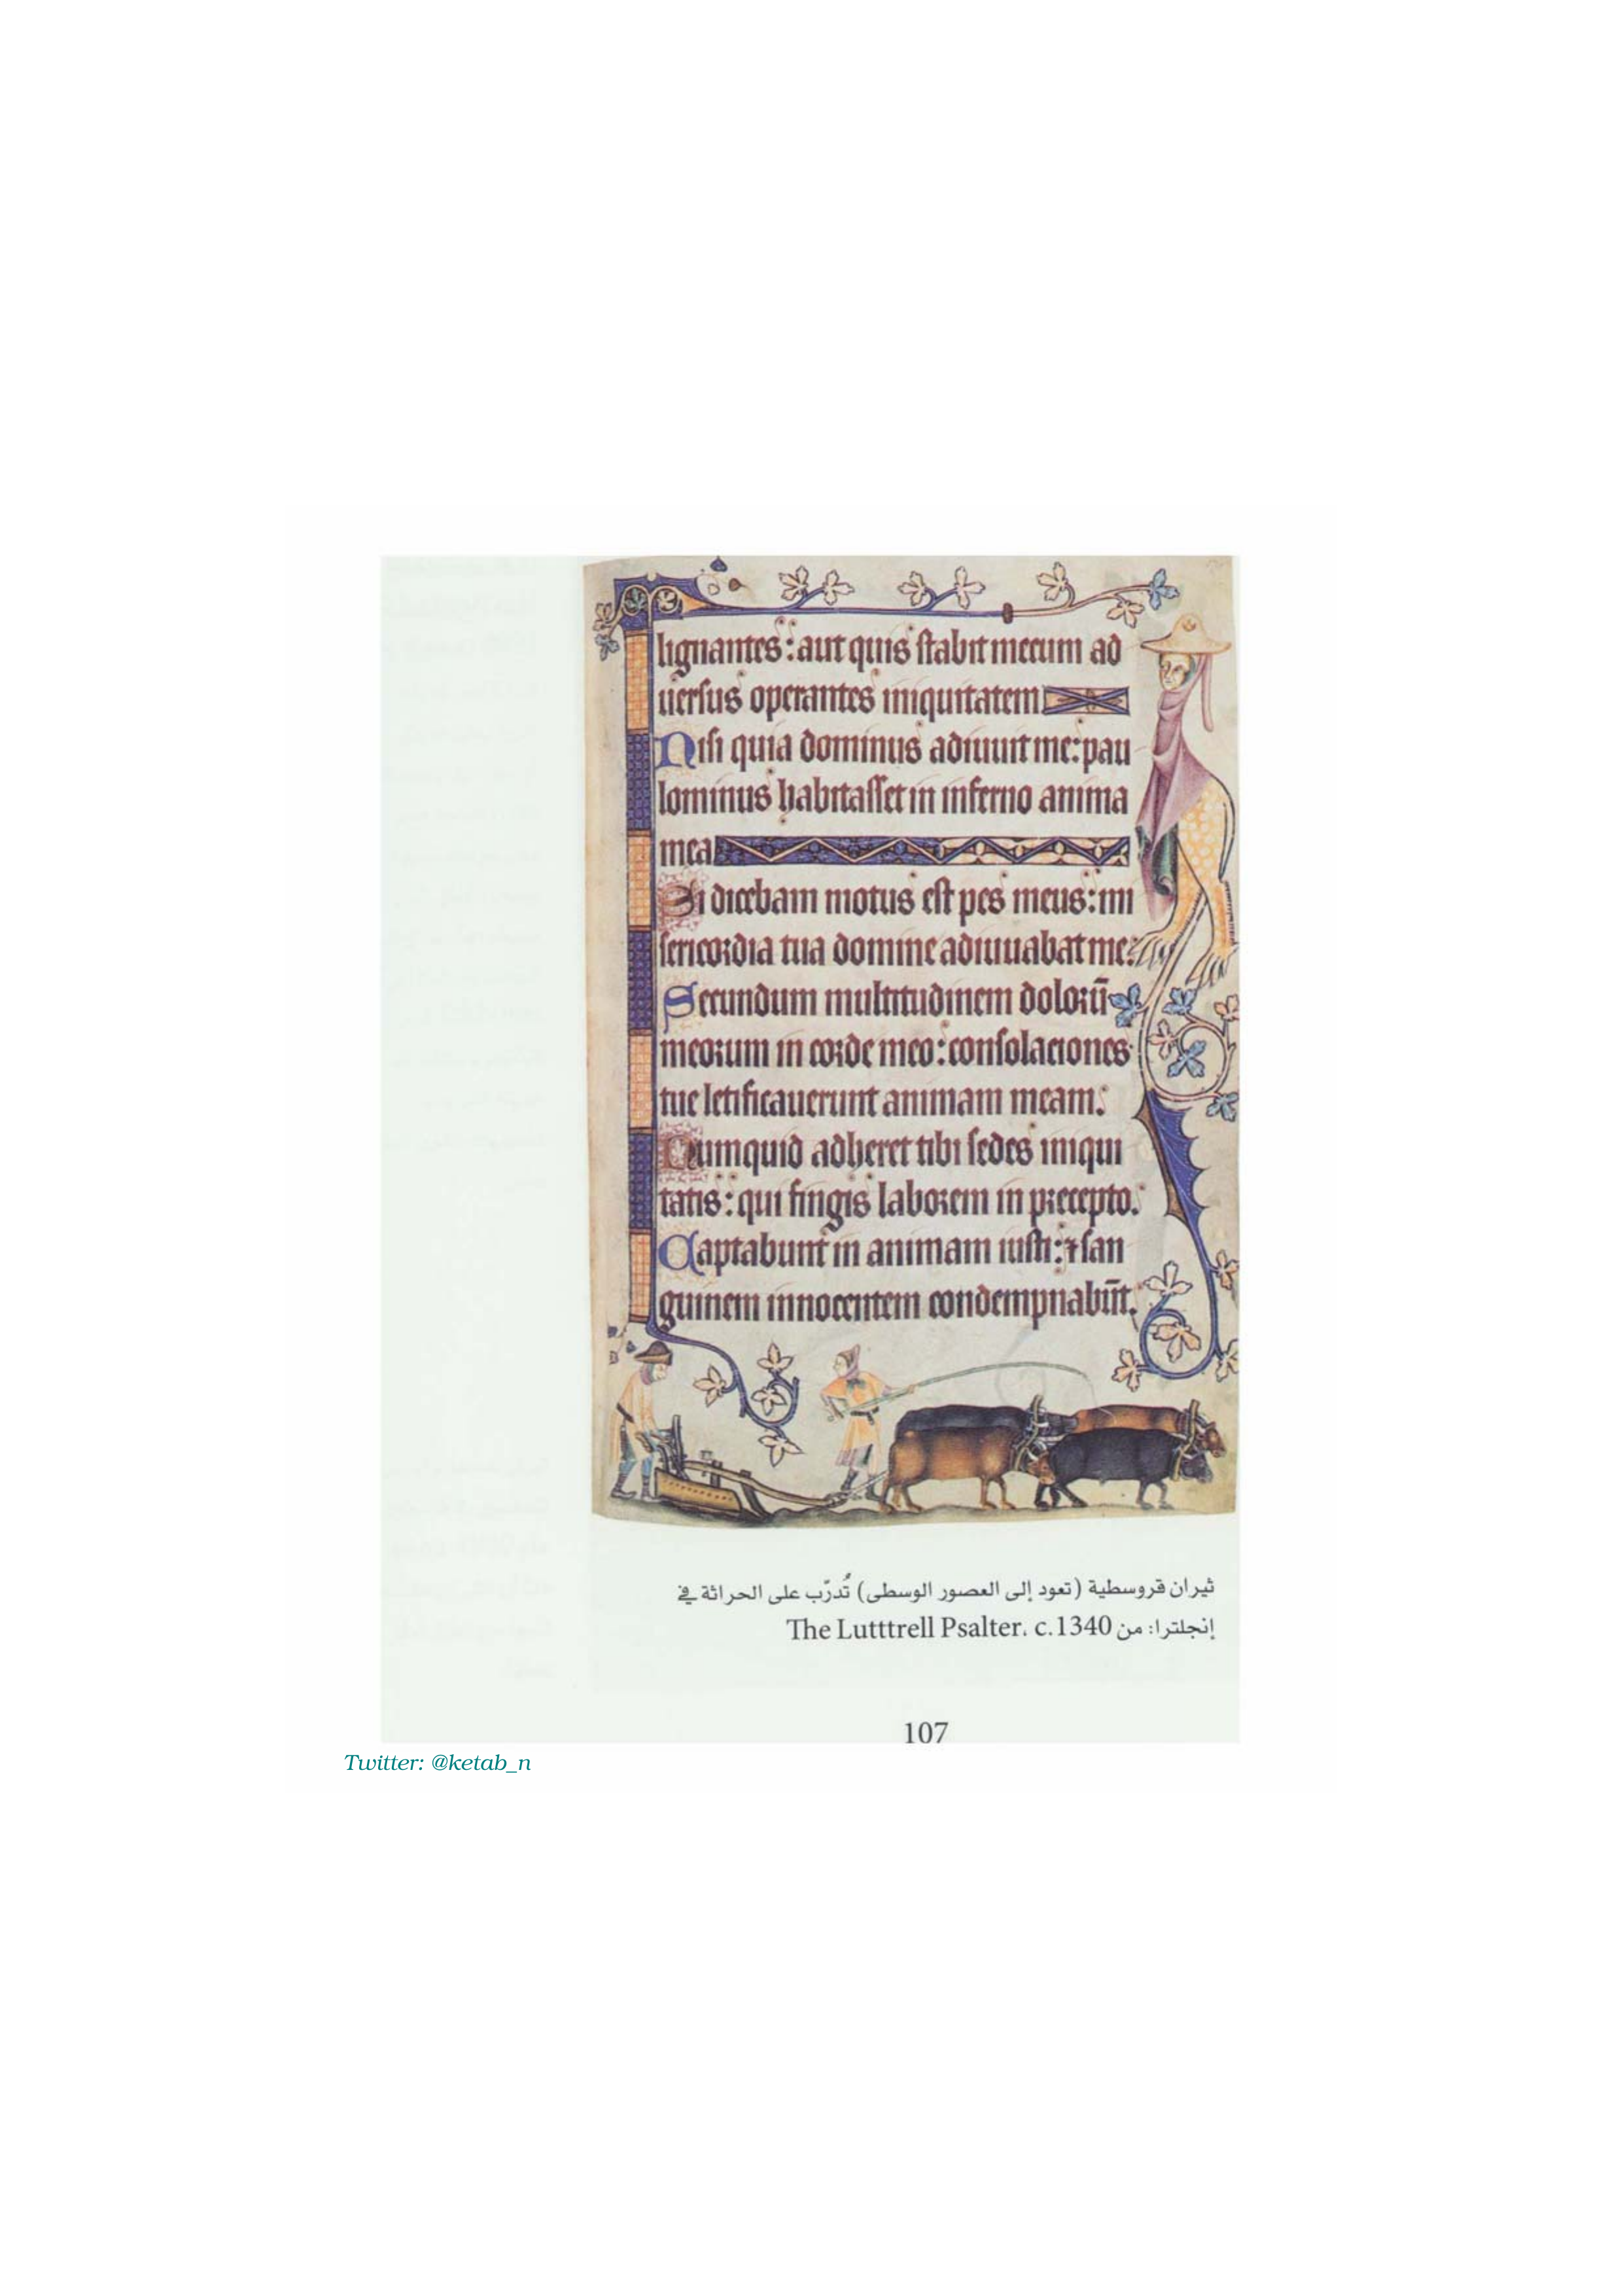 lignantes : aut quis stabit mecum ad
uersus operantes iniquitatem
Nisi quia dominus adiuuit me : pau
lominus habitasset in inferno anima
mea
Si dicebam motus est pes meus : mi
sericordia tua domine adiuuabat me :
Secundum multitudinem dolorū
meorum in corde meo : consolaciones
tue letificauerunt animam meam.
Numquid adheret tibi sedes iniqui
tatis : qui fingis laborem in precepto.
Captabunt in animam iusti : ⁊ san
guinem innocentem condempnabūt.
ثيران قروسطية (تعود إلى العصور الوسطى) تُدرّب على الحراثة في
إنجلترا: من The Lutttrell Psalter، c.1340
107
Twitter: @ketab_n